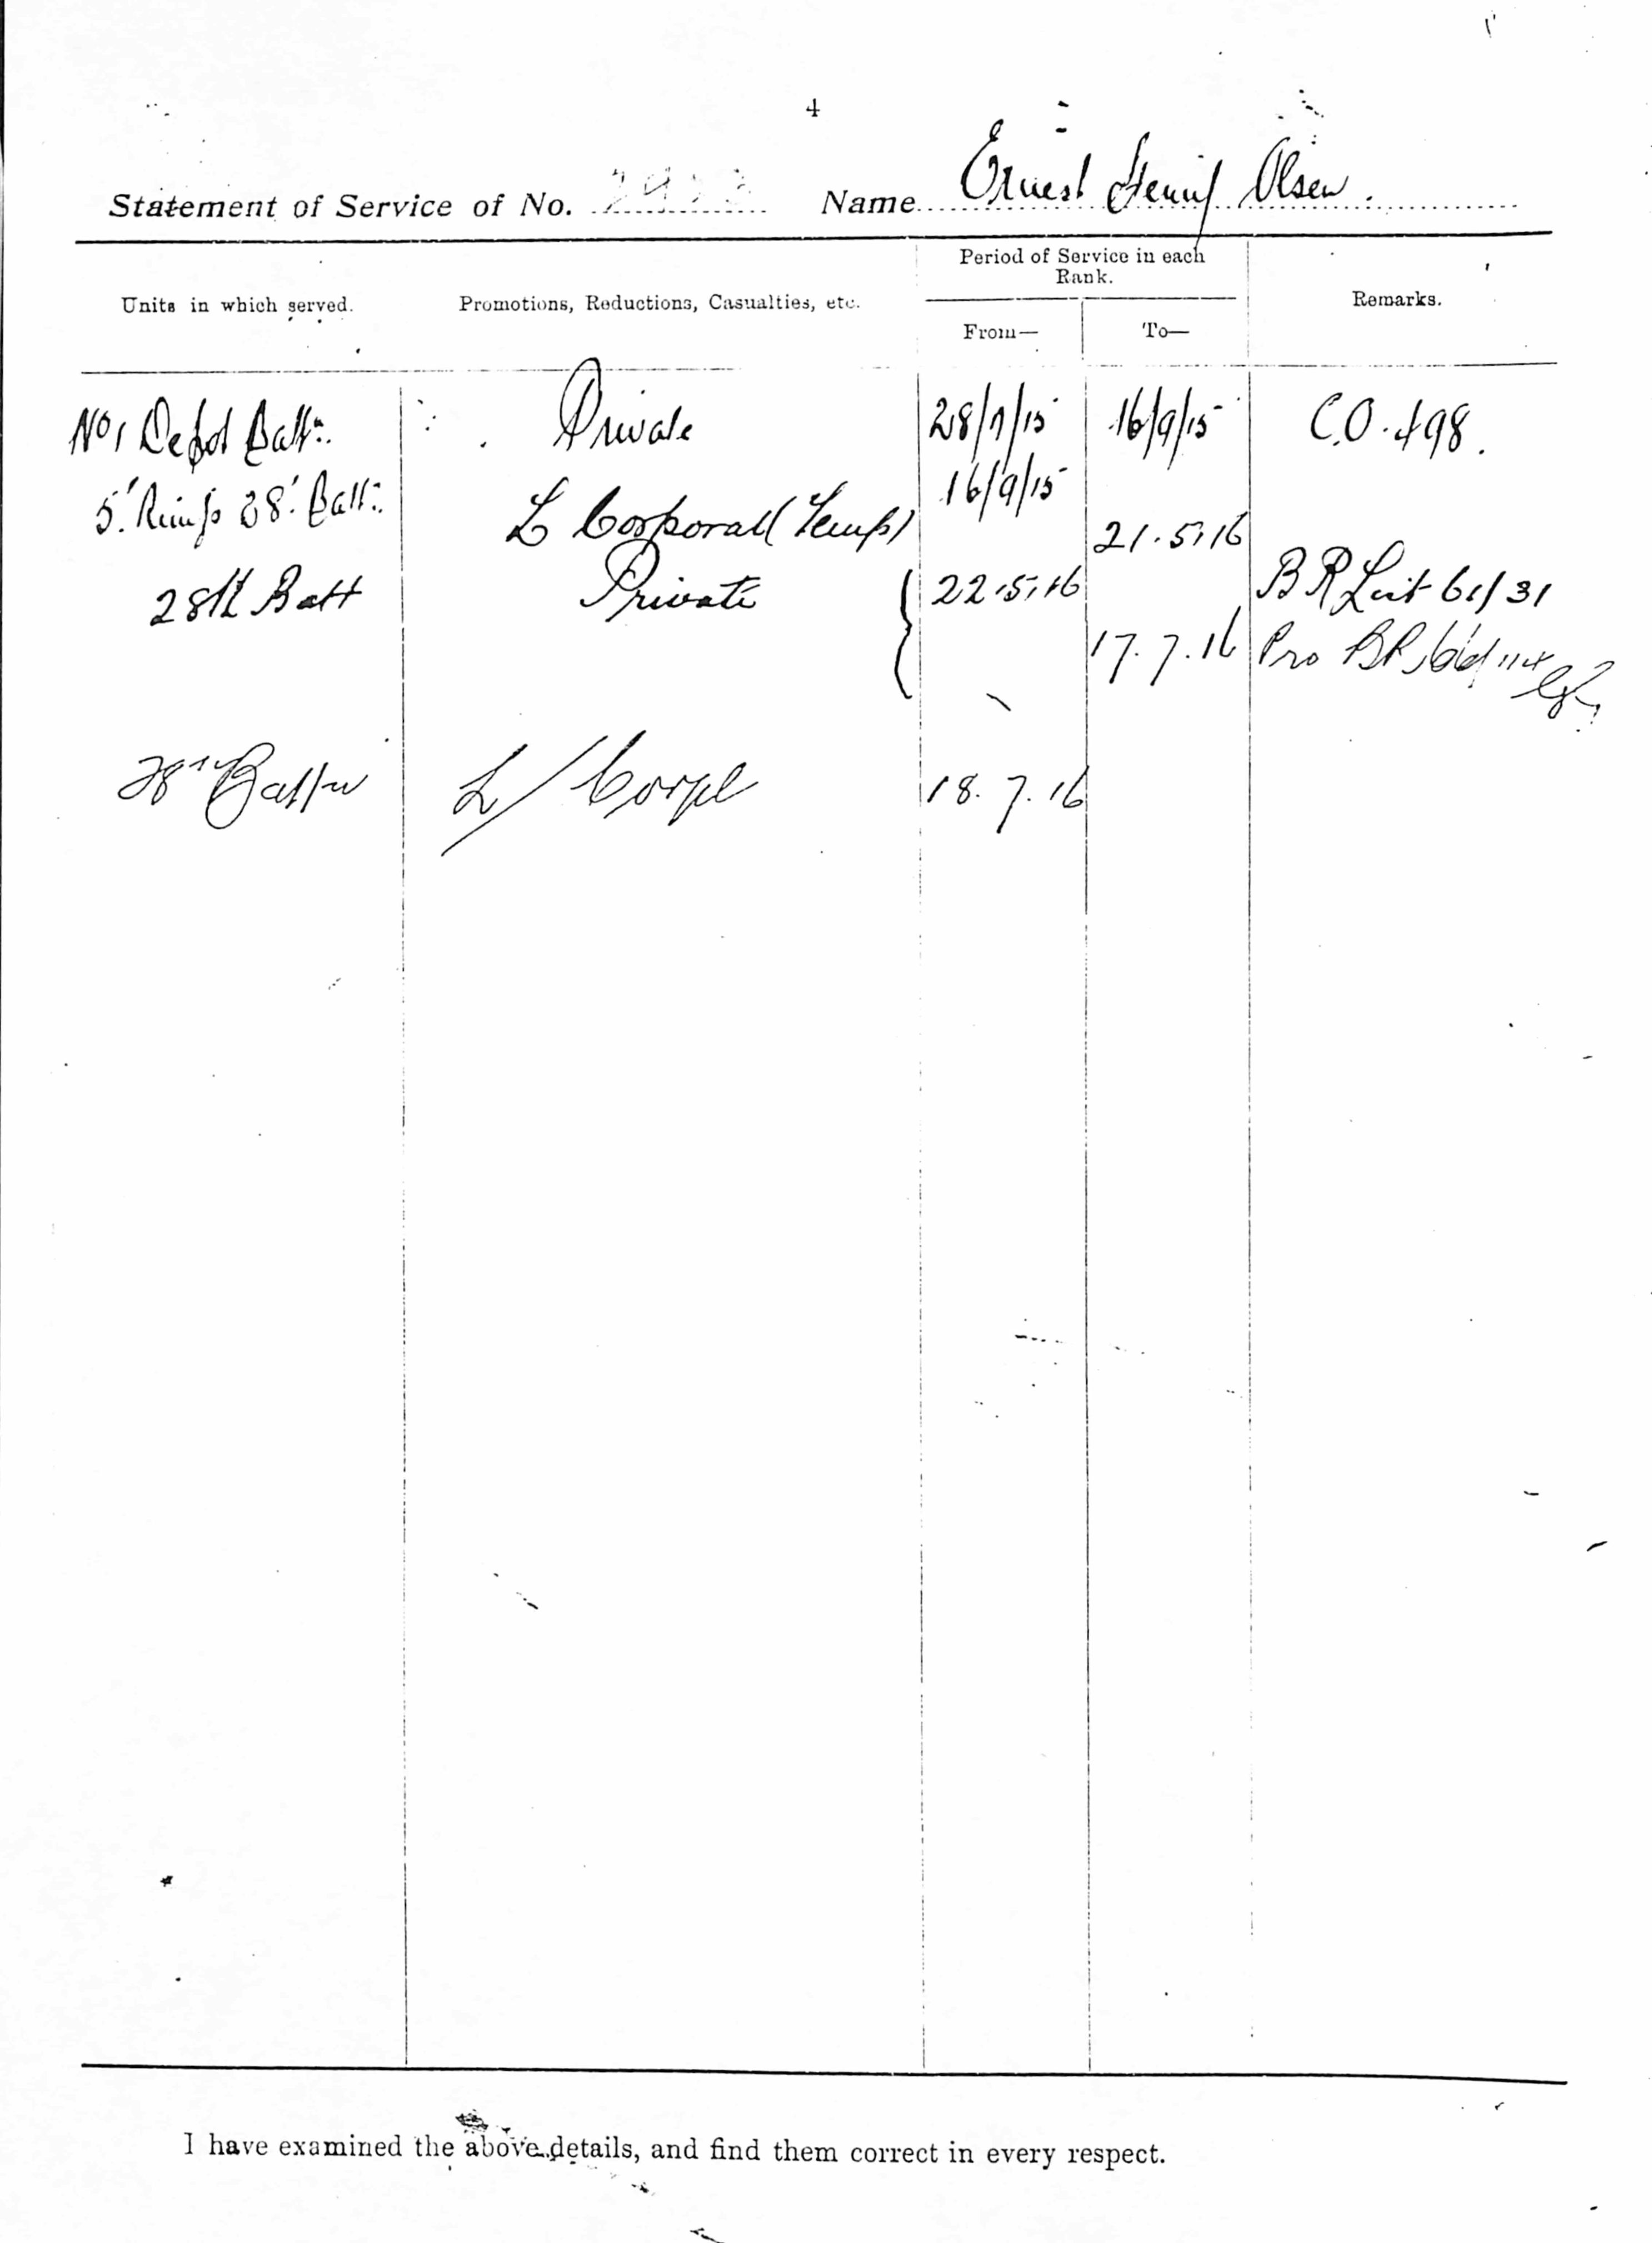 4
Statement of Service of No. Name Ernest Henry Olsen.
Period of Service in each
Rank.
Units in which served. Promotions, Reductions, Casualties, etc. Remarks.
From— To—
No 1 Depot Battn. Private 28/7/15 16/9/15 C.O. 498.
5' Reinfs 28' Battn. L Corporal (Temp) 16/9/15 21.5.16
28th Batt Private 22.5.16 B R List 61/31
17.7.16 Pro BR
28th Battn L/Corpl 18.7.16
I have examined the above details, and find them correct in every respect.